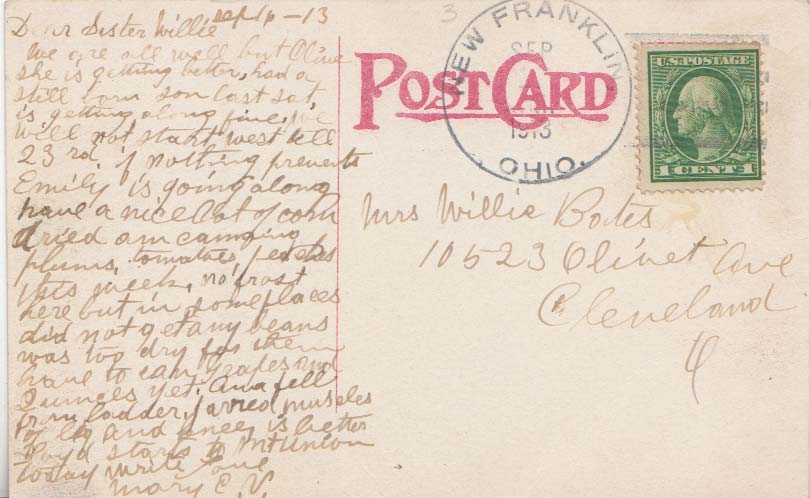 Sep 16-13
Dear Sister Willie
We are all well but Olive
she is getting better, had a
still born son last sat,
is getting along fine, we
will not start west till
23rd, if nothing prevents
Emily is going along
have a nice lot of corn
dried am canning
plums, tomatoes, peaches
this week, no frost
here but in some places
did not get any beans
was too dry for them
have to can grapes and
Quinces yet. Ana fell
from ladder, jarred muscles
of leg and knee, is better
Floyd starts to Mt Union
today write love
Mary C. V.
POST CARD
NEW FRANKLIN,
SEP
1913
OHIO.
U.S. POSTAGE
1 CENT 1
3
Mrs Willie Bates
10523 Olivet Ave
Cleveland
O